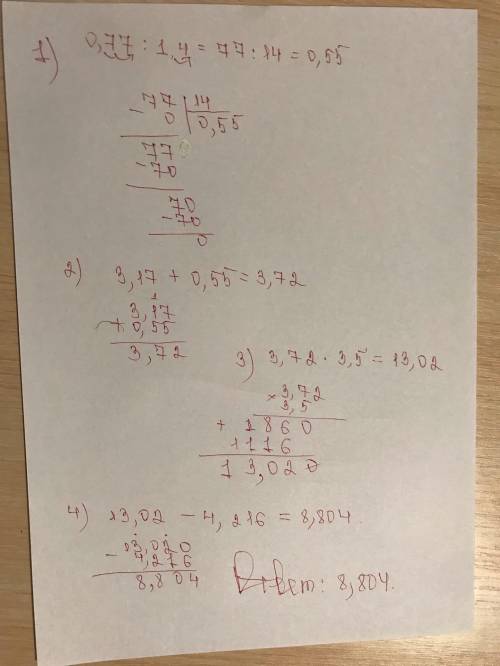 1) 0,77 : 1,4 = 77 : 14 = 0,55
- 77 | 14
0 | 0,55
- 77
70
- 70
70
0
2) 3,17 + 0,55 = 3,72
1
3,17
+ 0,55
3,72
3) 3,72 · 3,5 = 13,02
× 3,72
3,5
+ 1860
1116
13,020
4) 13,02 - 4,216 = 8,804
- 13,020
4,216
8,804
Ответ: 8,804.